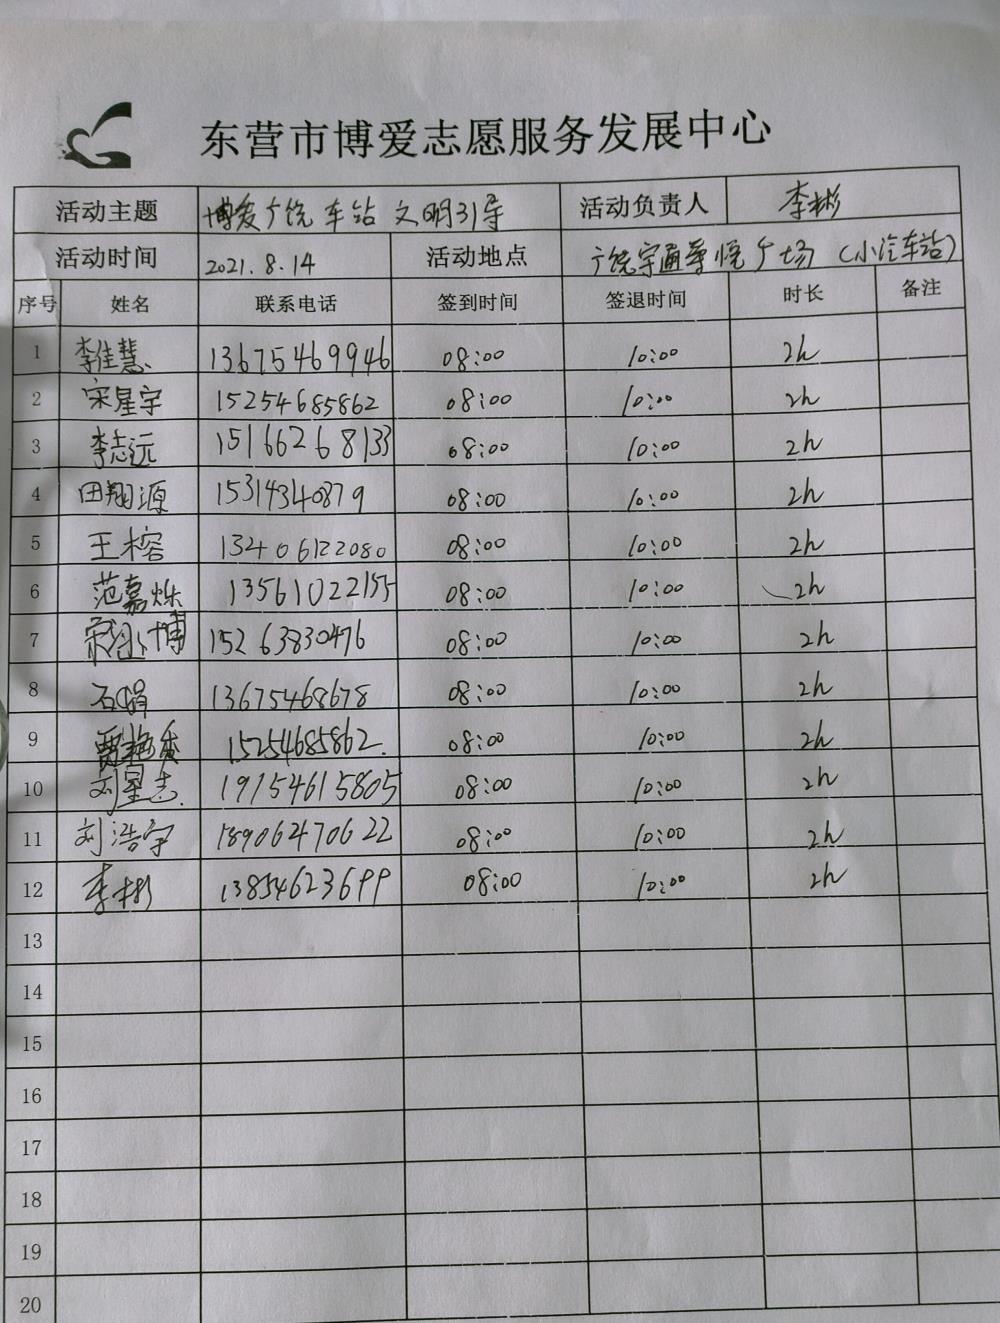 东营市博爱志愿服务发展中心
活动主题 博爱广饶车站文明引导 活动负责人 李彬
活动时间 2021.8.14 活动地点 广饶宇通尊悦广场(小汽车站)
序号 姓名 联系电话 签到时间 签退时间 时长 备注
1 李佳慧 13675469946 08:00 10:00 2h
2 宋星宇 15254685862 08:00 10:00 2h
3 李志远 15166268133 08:00 10:00 2h
4 田翔源 15314340879 08:00 10:00 2h
5 王榕 13406122080 08:00 10:00 2h
6 范嘉烁 13561022155 08:00 10:00 2h
7 宋 博 15263830476 08:00 10:00 2h
8 石娟 13675468678 08:00 10:00 2h
9 贾艳香 15254685862. 08:00 10:00 2h
10 刘星志 19154615805 08:00 10:00 2h
11 刘浩宇 18906470622 08:00 10:00 2h
12 李彬 13854623699 08:00 10:00 2h
13
14
15
16
17
18
19
20